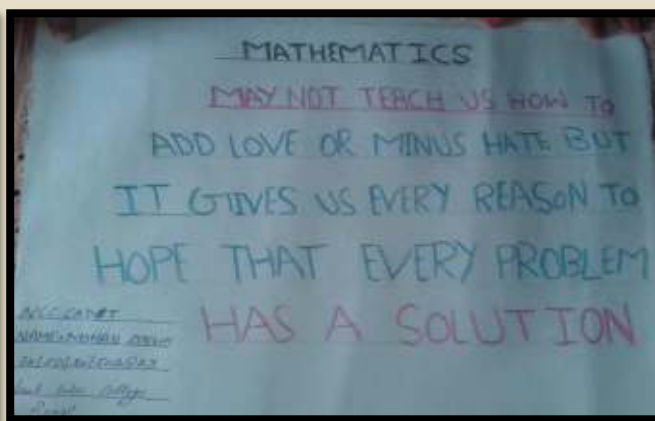 MATHEMATICS
MAY NOT TEACH US HOW TO
ADD LOVE OR MINUS HATE BUT
IT GIVES US EVERY REASON TO
HOPE THAT EVERY PROBLEM
HAS A SOLUTION
NCC CADET
NAME-MOHAN
College